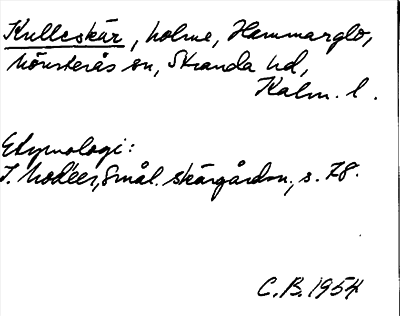 Kulleskär, holme, Hammarglo,
Mönsterås sn, Stranda hd,
Kalm. l.
Etymologi:
I. Modéer, Smål. skärgårdsn., s. 78.
C.B. 1954